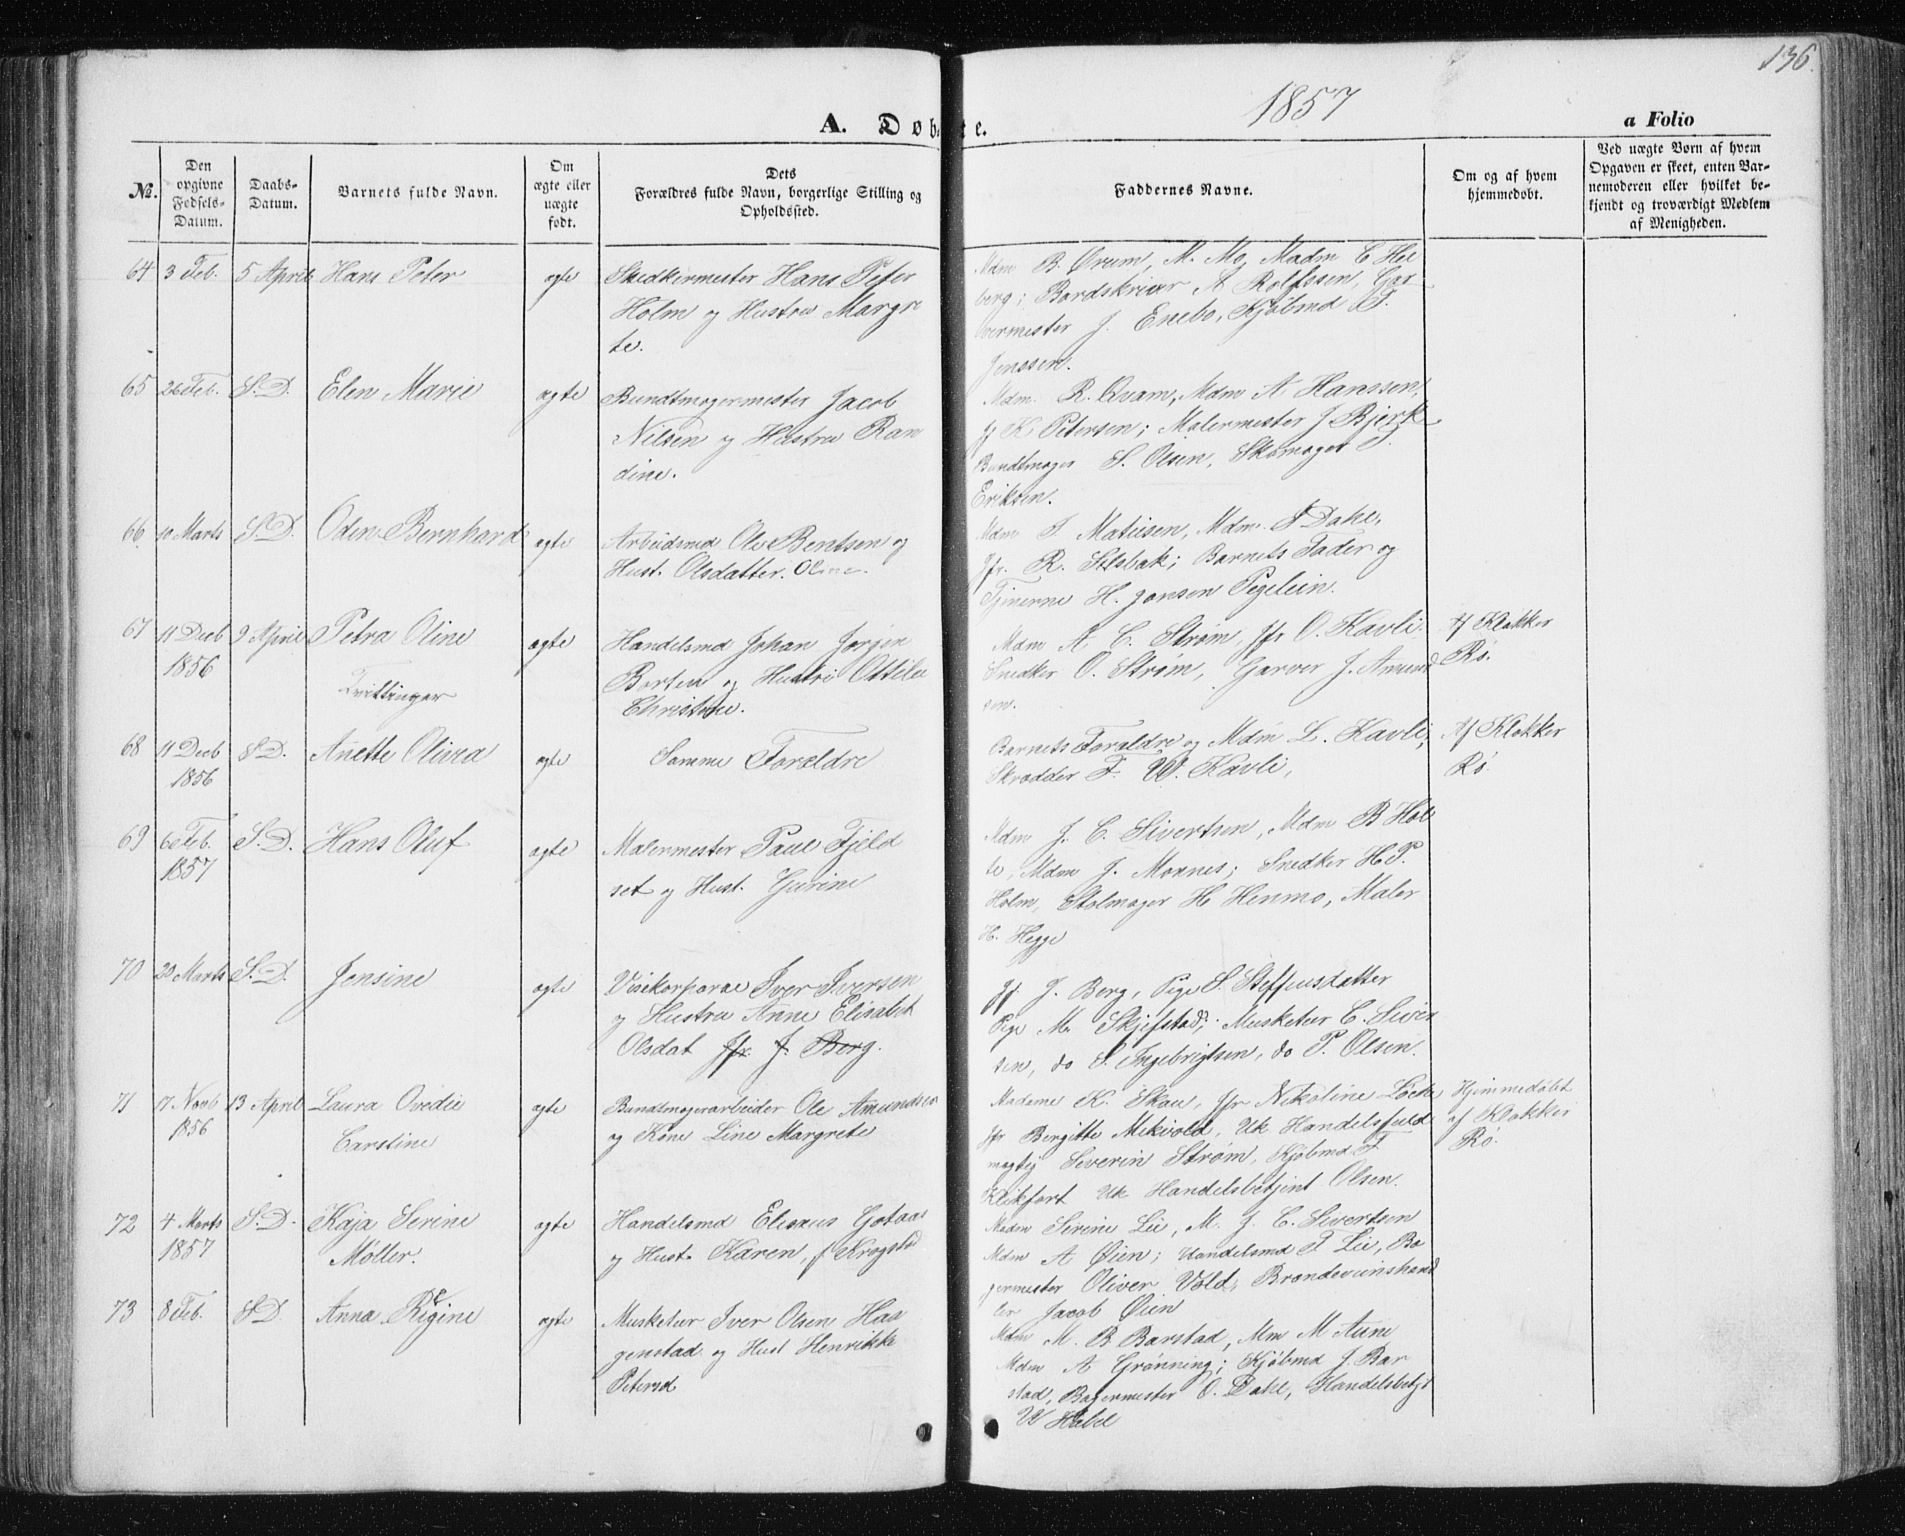 136.
1857
A. Døbte.
a Folio
№.
Den opgivne Fødsels-Datum.
Daabs-Datum.
Barnets fulde Navn.
Om ægte eller uægte født.
Dets
Forældres fulde Navn, borgerlige Stilling og
Opholdssted.
Faddernes Navne.
Om og af hvem
hjemmedøbt.
Ved uægte Børn af hvem
Opgaven er skeet, enten Bar-
nemoderen eller hvilket be-
kjendt og troværdigt Medlem
af Menigheden.
64 3 Feb. 5 April Hans Peter ægte
Hans Peter
Holm og Hustru Margre
te.
Mdm B. Øvum, M. Mo, Madm C Hel
berg; Bordskriver A Rolfssen, Gar
vermester J. Enebo, Kjøbmd T.
Jenssen.
65 26 Feb. S.D. Elen Marie ægte
Bundtmagermester Jacob
Nilsen og Hustru Ran
dine.
Mdm. R. Qvam, Mdm A Hanssen,
Jf K Petersen; Malermester J Bjerk
Bundtmager S. Olsen, Skomager T.
Eriksen.
66 10 Marts S.D. Oden Bernhard ægte
Arbeidsmd Ole Bentsen og
Hust. Olsdatter. Oline.
Mdm T Matiesen, Mdm. P Dahl,
Jfr. R. Selsbak; Barnets Fader og
Tjenerne H. Jonsen
67 11 Decb 9 April Petra Oline ægte
1856
Tvillinger
Handelsmd Johan Jørgen
Borten og Hustru Ottilie
Christine.
Mdm A C. Strøm, Jfr O. Kavli.
Snedker O. Strøm, Garver J. Amund
sen.
Af Klokker
Rø.
68 11 Decb S.D. Anette Olivia ægte
1856
Samme Forældre
Barnets Forældre og Mdm L. Kavli,
Skrædder F. W. Kavli,
Af Klokker
Rø.
69 6 Feb. S.D. Hans Oluf ægte
1857
Malermester Paul Fjeld
set og Hust. Gurine
Mdm J. C. Sivertsen, Mdm B Hol
te, Mdm J. Moxnes; Snedker H. P.
Holm, Stolmager H Henmo, Maler
H. Hegge
70 20 Marts S.D. Jensine ægte
Vicekorporal Iver Iversen
og Hustru Anne Elisabet
Olsdat Jfr. J. Berg.
Jf. J. Berg, Pige S. Steffensdatter
Pige M. Skjefstad; Musketeer C. Siver
sen, do S. Ingebrigtsen, do P. Olsen.
71 17 Novb 13 April Laura Ovedie ægte
1856
Carstine
Bundtmagerarbeider Ole Amundsen
og Kone Line Margrete
Madame K. Skau, Jfr Nikoline Løcke
Jfr Bergitte Mekvold, Uk Handelsfuld
mægtig Severin Strøm, Kjøbmd F
Klikfort Uk Handelsbetjent Olsen.
Hjemmedøbt
af Klokker
Rø.
72 4 Marts S.D. Kaja Serine ægte
1857
Møller.
Handelsmd Elisæus Gotaas
og Hust. Karen, f Krogstad
Madm Serine Lie, M. J. C. Sivertsen
Mdm A Øien; Handelsmd T Lie, Ba
germester Oliver Vold, Brændeviinshand
ler Jacob Øien
73 8 Feb. S.D. Anna Regine ægte
Musketeer Iver Olsen Haa
genstad og Hust Henrikke
Petersd
Mdm M. B Barstad, Mm M Aune
Mdm A Grønning; Kjøbmd J. Bar
stad, Bagermester O. Dahl, Handelsbetjt
W Habel